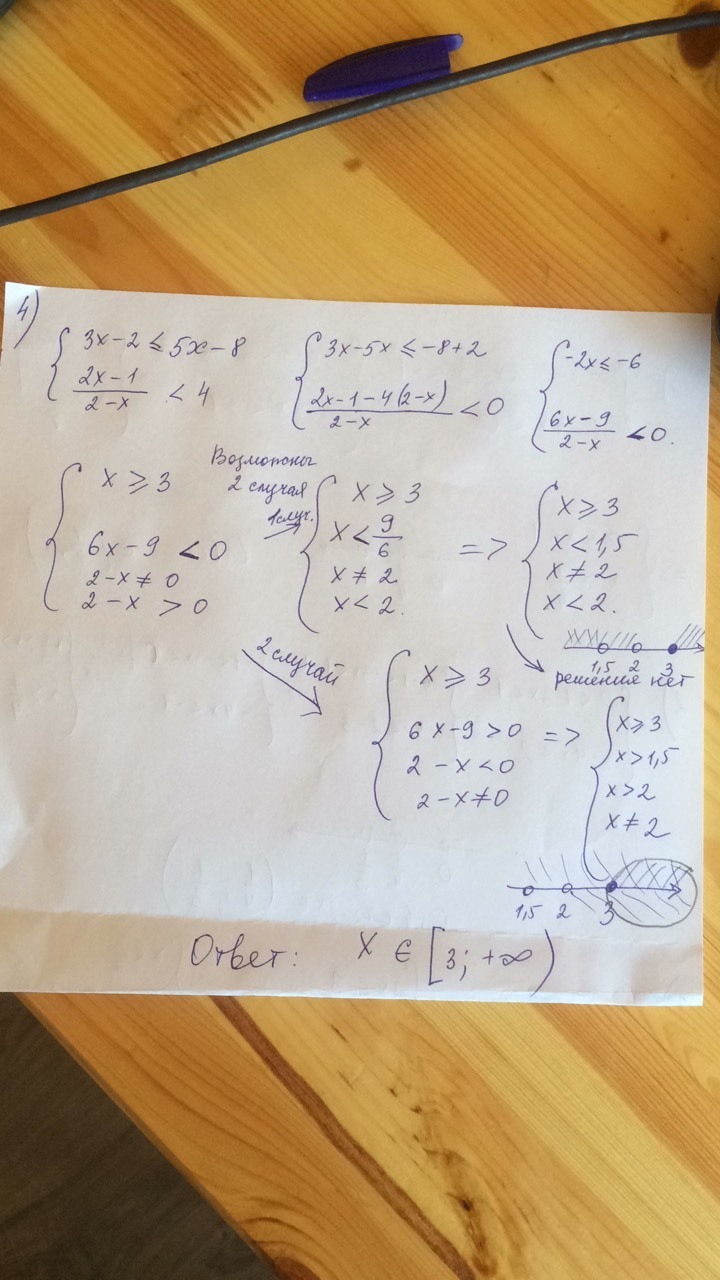 4)
{ 3x-2 ≤ 5x-8
{ (2x-1)/(2-x) < 4
{ 3x-5x ≤ -8+2
{ (2x-1-4(2-x))/(2-x) < 0
{ -2x ≤ -6
{ (6x-9)/(2-x) < 0.
{ x ⩾ 3
6x-9 < 0
2-x ≠ 0
2-x > 0
Возможны
2 случая
1 случ.
{ x ⩾ 3
x < 9/6
x ≠ 2
x < 2.
=>
{ x ⩾ 3
x < 1,5
x ≠ 2
x < 2.
1,5 2 3
решения нет
2 случай
{ x ⩾ 3
6x-9 > 0
2-x < 0
2-x ≠ 0
=>
{ x ⩾ 3
x > 1,5
x > 2
x ≠ 2
1,5 2 3
Ответ: x ∈ [3; +∞)